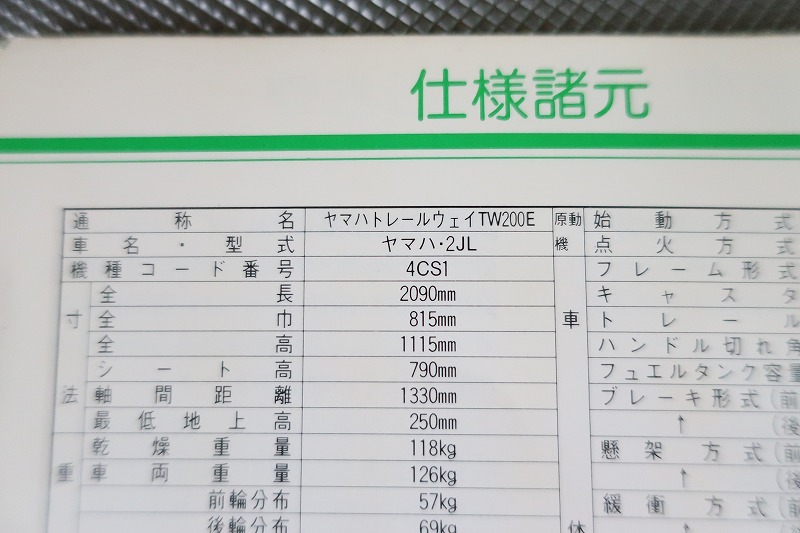 仕様諸元
通称名 ヤマハトレールウェイTW200E 原動機 始動方式
車名・型式 ヤマハ・2JL 点火方式
機種コード番号 4CS1 フレーム形式
寸法 全長 2090mm 車体 キャスタ
全巾 815mm トレール
全高 1115mm ハンドル切れ角
シート高 790mm フュエルタンク容量
軸間距離 1330mm ブレーキ形式(前
最低地上高 250mm ↑ (後
重 乾燥重量 118kg 懸架方式(前
車両重量 126kg ↑ (後
前輪分布 57kg 緩衝方式(前
後輪分布 69kg ↑